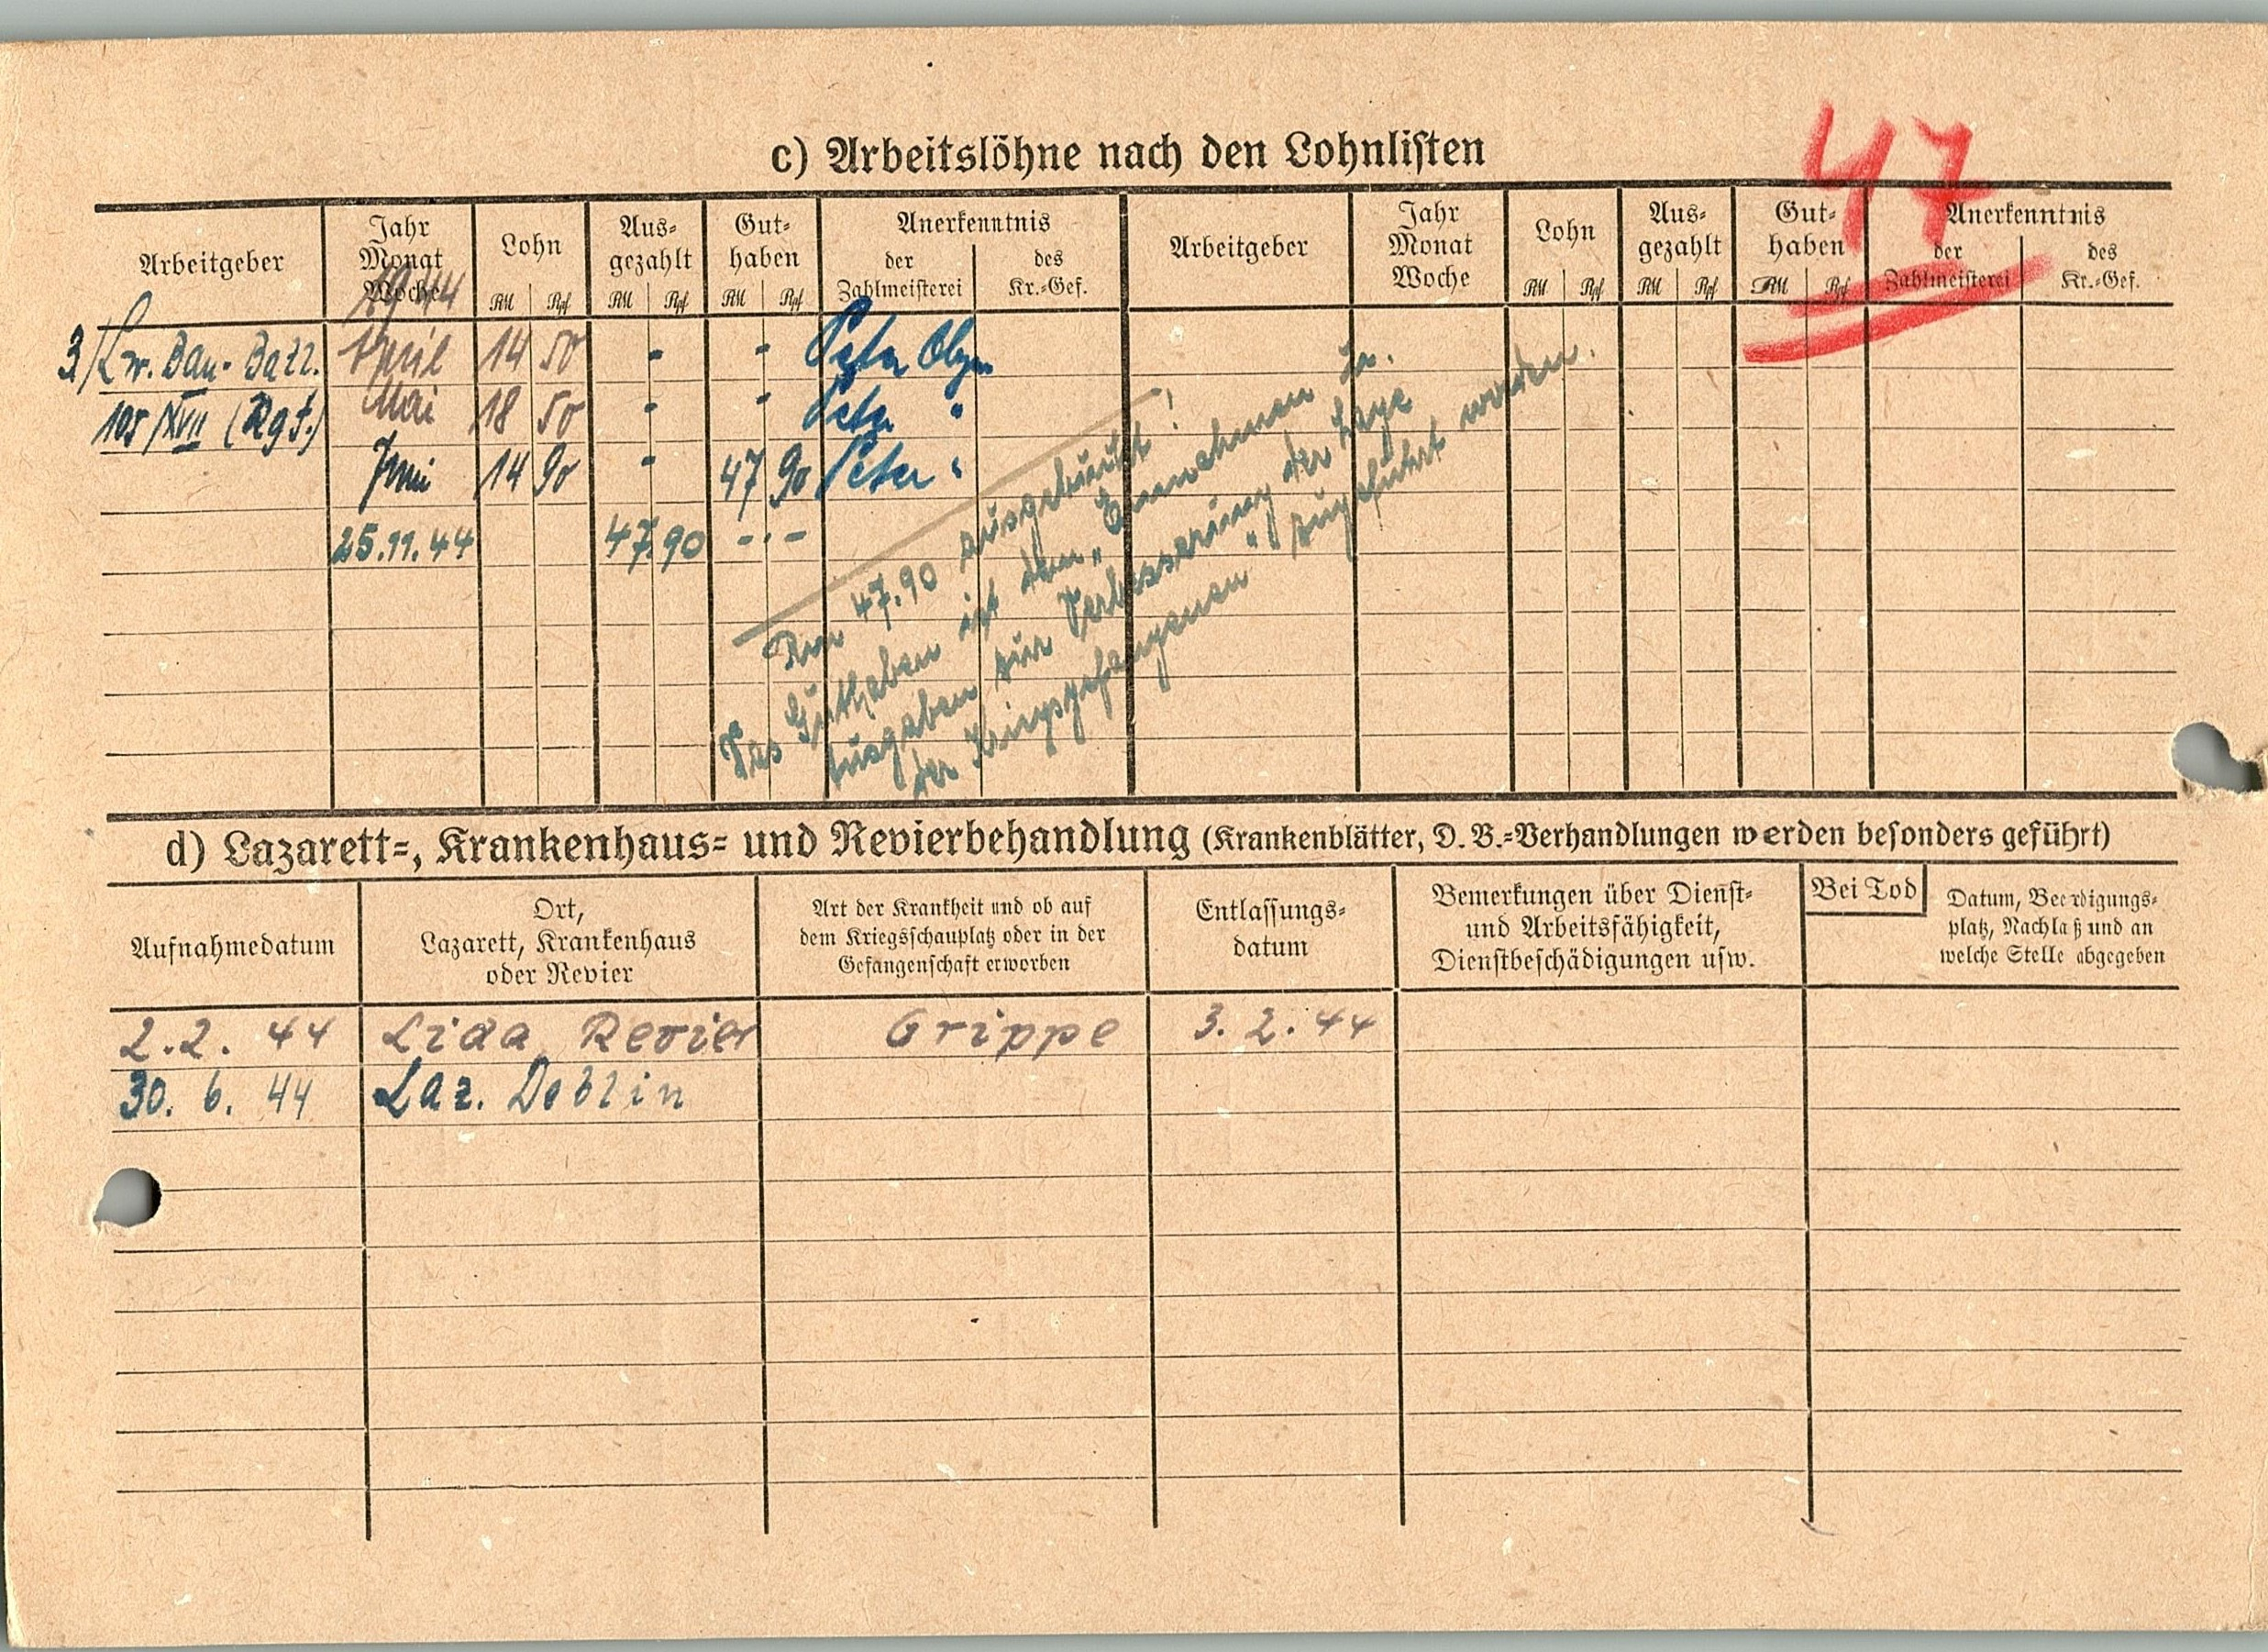 47
c) Arbeitslöhne nach den Lohnlisten
Arbeitgeber | Jahr Monat Woche | Lohn RM Rpf | Aus-gezahlt RM Rpf | Gut-haben RM Rpf | Anerkenntnis der Zahlmeisterei | des Kr.-Gef. | Arbeitgeber | Jahr Monat Woche | Lohn RM Rpf | Aus-gezahlt RM Rpf | Gut-haben RM Rpf | Anerkenntnis der Zahlmeisterei | des Kr.-Gef.
1944
3/Lw. Bau-Batl. | April | 14 50 | - | - | Peter
105/XVII (Rgt.) | Mai | 18 50 | - | - | Peter "
Juni | 14 90 | - | 47 90 | Peter "
25.11.44 | 47.90 | -.-
RM 47.90 ausgebucht!
Das Guthaben ist den „Einnahmen u.
Ausgaben zur Verbesserung der Lage
der Kriegsgefangenen" zugeführt worden.
d) Lazarett-, Krankenhaus- und Revierbehandlung (Krankenblätter, D. B.-Verhandlungen werden besonders geführt)
Aufnahmedatum | Ort, Lazarett, Krankenhaus oder Revier | Art der Krankheit und ob auf dem Kriegsschauplatz oder in der Gefangenschaft erworben | Entlassungs-datum | Bemerkungen über Dienst- und Arbeitsfähigkeit, Dienstbeschädigungen usw. | Bei Tod | Datum, Beerdigungs-platz, Nachlaß und an welche Stelle abgegeben
2.2. 44 | Lida Revier | Grippe | 3. 2. 44
30. 6. 44 | Laz. Deblin